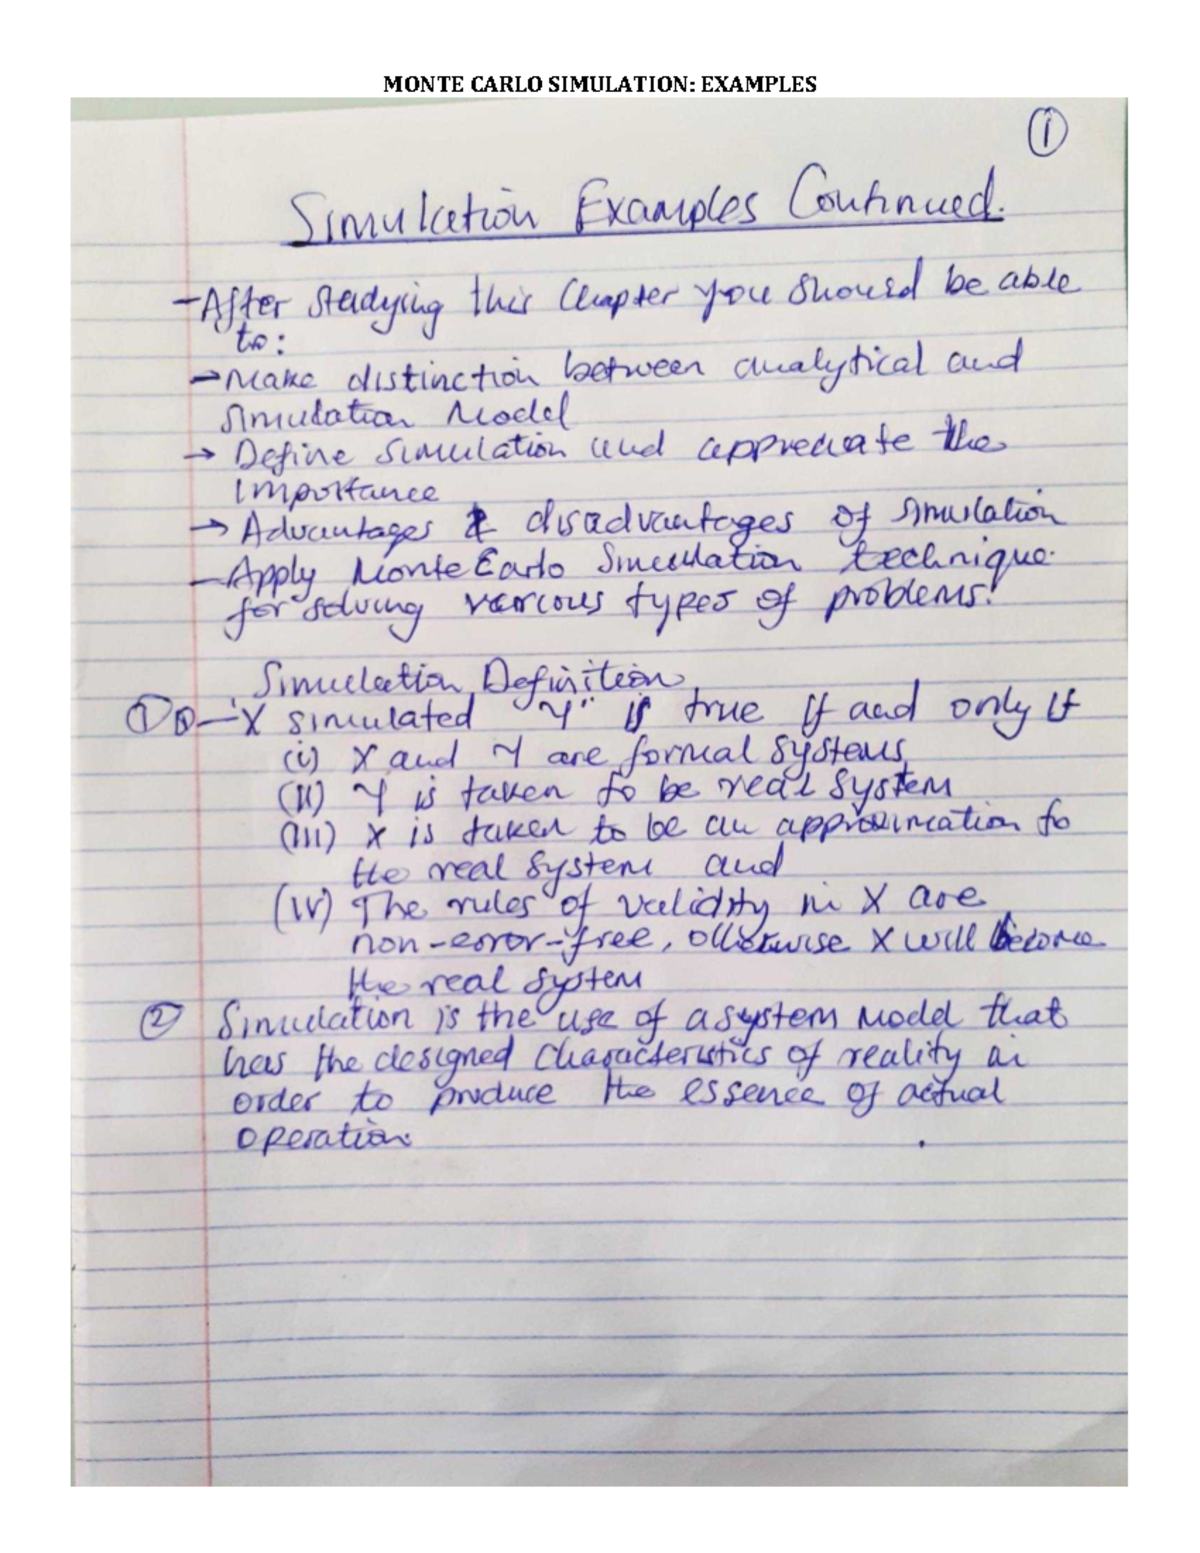 MONTE CARLO SIMULATION: EXAMPLES
1
Simulation Examples Continued.
- After studying this Chapter you should be able
to:
→ Make distinction between analytical and
Simulation Model
→ Define Simulation and appreciate the
Importance
→ Advantages & disadvantages of Simulation
- Apply Monte Carlo Simulation technique
for solving various types of problems!
Simulation Definition
① - 'X simulated "Y" is true If and only If
(i) X and Y are formal systems
(II) Y is taken to be real system
(III) X is taken to be an approximation to
the real system and
(IV) The rules of validity in X are
non-error-free, otherwise X will become
the real system
② Simulation is the use of a system Model that
has the designed Characteristics of reality in
order to produce the essence of actual
operation.